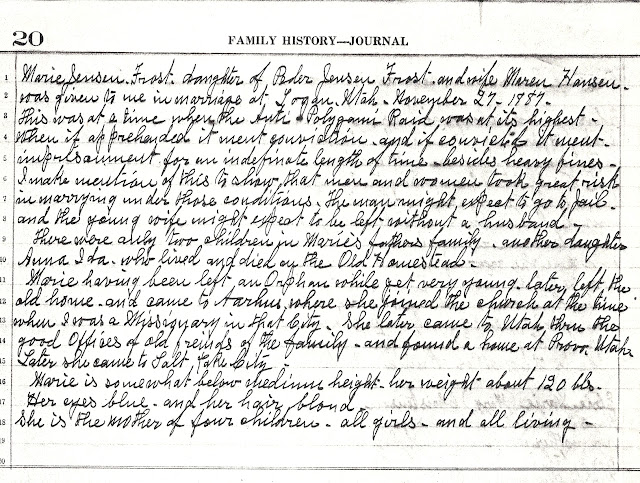 20
FAMILY HISTORY—JOURNAL
1 Marie Jensen-Frost. daughter of Peder Jensen Frost and wife Maren Hansen-
2 was given to me in marriage at Logan, Utah - November 27-1887-
3 this was at a time when the Anti-Polygami Raid was at its highest-
4 when if apprehended it ment conviction - and if convicted it ment-
5 imprisainment for an indefinate length of time - besides heavy fines-
6 I make mention of this to show, that men and women took great risk
7 in marrying under those conditions. The man might expect to go to jail-
8 and the young wife might expect to be left without a husband-
9 There were only two children in Maries fathers family - another daughter
10 Anna Ida. who lived and died on the Old Homestead-
11 Marie having been left an Orphan while yet very young - later, left the
12 old home - and came to Aarhus, where she joined the church at the time
13 when I was a Missionary in that City. She later came to Utah thru the
14 good Offices of old friends of the family - and found a home at Provo, Utah
15 Later she came to Salt Lake City
16 Marie is somewhat below medium height - her weight about 120 lbs-
17 Her eyes blue - and her hair, blond-
18 She is the mother of four children - all girls - and all living-
19
20